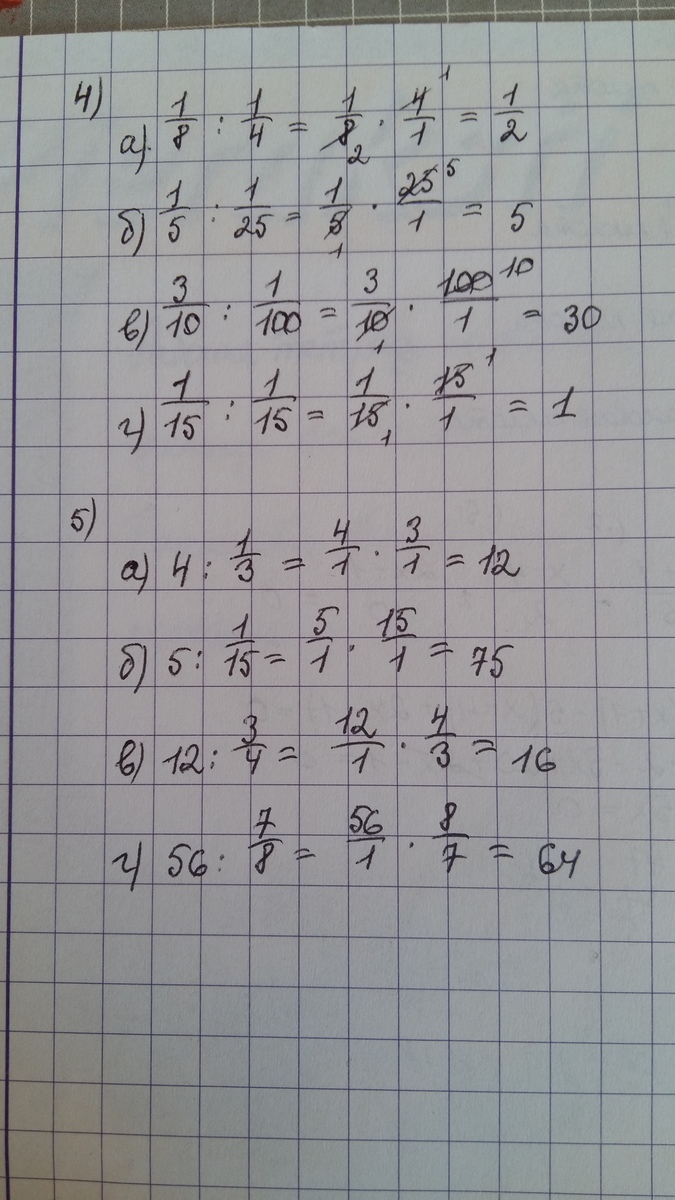 4)
а) 1/8 : 1/4 = 1/8 2 · 4/1 1 = 1/2
б) 1/5 : 1/25 = 1/5 1 · 25/1 5 = 5
в) 3/10 : 1/100 = 3/10 1 · 100/1 10 = 30
г) 1/15 : 1/15 = 1/15 1 · 15/1 1 = 1
5)
а) 4 : 1/3 = 4/1 · 3/1 = 12
б) 5 : 1/15 = 5/1 · 15/1 = 75
в) 12 : 3/4 = 12/1 · 4/3 = 16
г) 56 : 7/8 = 56/1 · 8/7 = 64